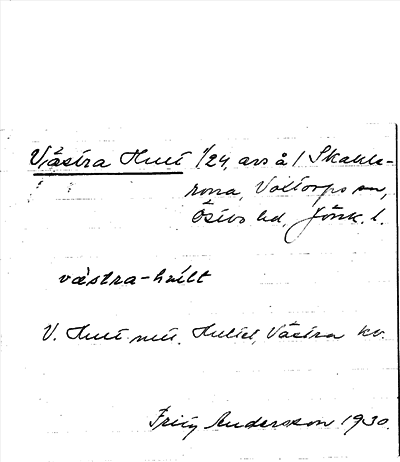 Västra Hult 1/24, avs å / Skahle-
rona, Valtorps sn,
Östbo hd, Jönk. l.
västra-hult
V. Hult
Västra kv.
Fritz Andersson 1930.